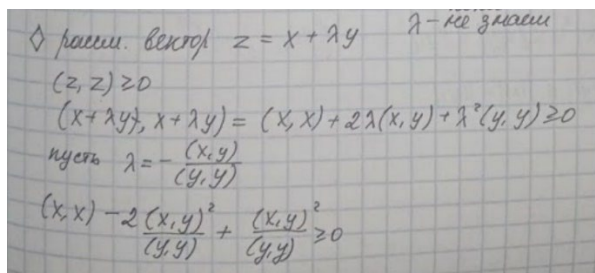 ◊ рассм. вектор z = x + λy λ - не знаем
(z, z) ≥ 0
(x + λy, x + λy) = (x, x) + 2λ(x, y) + λ²(y, y) ≥ 0
пусть λ = - (x, y) / (y, y)
(x, x) - 2 (x, y)² / (y, y) + (x, y)² / (y, y) ≥ 0